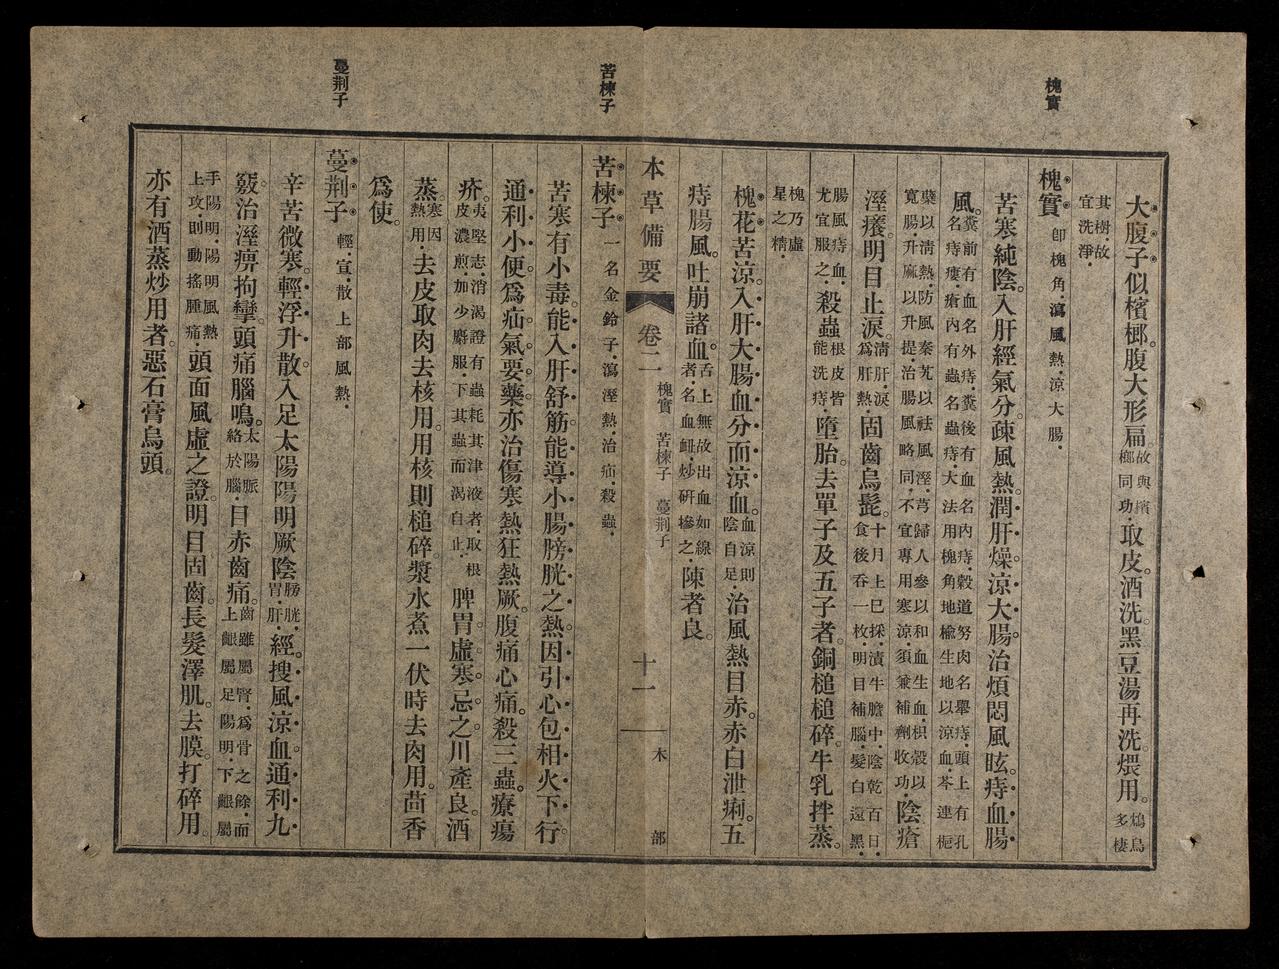 槐實
苦楝子
蔓荆子
大腹子似檳榔。腹大形扁。故與檳榔同功．取皮。酒洗。黑豆湯再洗。煨用。鴆鳥多棲
其樹．故宜洗淨．
槐實 卽槐角．瀉風熱．涼大腸．
苦寒純陰。入肝經氣分。疎風熱。潤肝燥。涼大腸。治煩悶風眩。痔血腸
風。糞前有血名外痔．糞後有血名內痔．穀道努肉名舉痔．頭上有孔名痔瘻．瘡內有蟲名蟲痔．大法用槐角地楡生地以涼血芩連梔
蘗以淸熱．防風秦艽以祛風溼．芎歸人參以和血生血．枳殼以寬腸．升麻以升提．治腸風略同．不宜專用寒涼須兼補劑收功．陰瘡
溼癢。明目止淚。淸肝．淚爲肝熱．固齒烏髭。十月上巳採漬牛膽中．陰乾百日．食後吞一枚．明目補腦．髮白還黑．
腸風痔血．尤宜服之．殺蟲。根皮皆能洗痔．墮胎。去單子及五子者。銅槌槌碎。牛乳拌蒸。
槐乃虛星之精．
槐花苦涼。入肝大腸血分而涼血。血涼則陰自足．治風熱目赤。赤白泄痢。五
痔腸風。吐崩諸血。舌上無故出血如線者．名血衄．炒研摻之．陳者良。
本草備要 卷二 槐實 苦楝子 蔓荆子 十一 木部
苦楝子 一名金鈴子．瀉溼熱．治疝．殺蟲．
苦寒有小毒。能入肝舒筋。能導小腸膀胱之熱。因引心包相火下行。
通利小便。爲疝氣要藥。亦治傷寒熱狂熱厥。腹痛心痛。殺三蟲。療瘍
疥。夷堅志．消渴證有蟲耗其津液者．取根皮濃煎．加少麝服．下其蟲而渴自止．脾胃虛寒忌之。川產良。酒
蒸。寒因熱用．去皮取肉去核用。用核則槌碎。漿水煮一伏時去肉用。茴香
爲使。
蔓荆子 輕．宣．散上部風熱．
辛苦微寒。輕浮升散。入足太陽陽明厥陰膀胱．胃．肝．經。搜風涼血。通利九
竅。治溼痹拘攣。頭痛腦鳴。太陽脈絡於腦．目赤齒痛。齒雖屬腎．爲骨之餘．而上齦屬足陽明．下齦屬
手陽明．陽明風熱上攻．則動搖腫痛．頭面風虛之證。明目固齒。長髮澤肌。去膜打碎用。
亦有酒蒸炒用者。惡石膏烏頭。